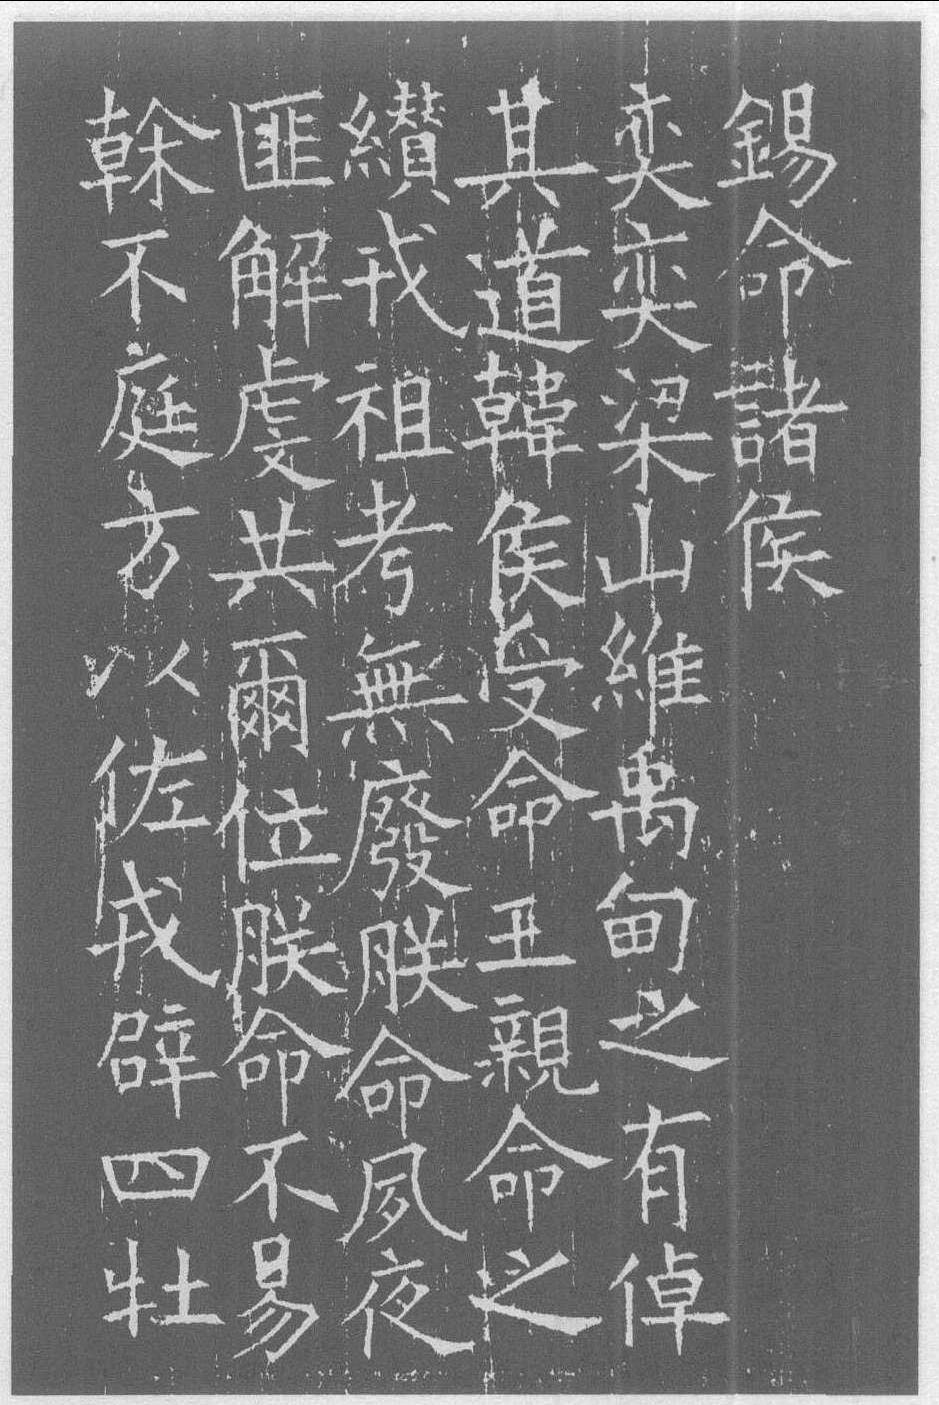 錫命諸侯
奕奕梁山維禹甸之有倬
其道韓侯受命王親命之
纘戎祖考無廢朕命夙夜
匪解虔共爾位朕命不易
榦不庭方以佐戎辟四牡